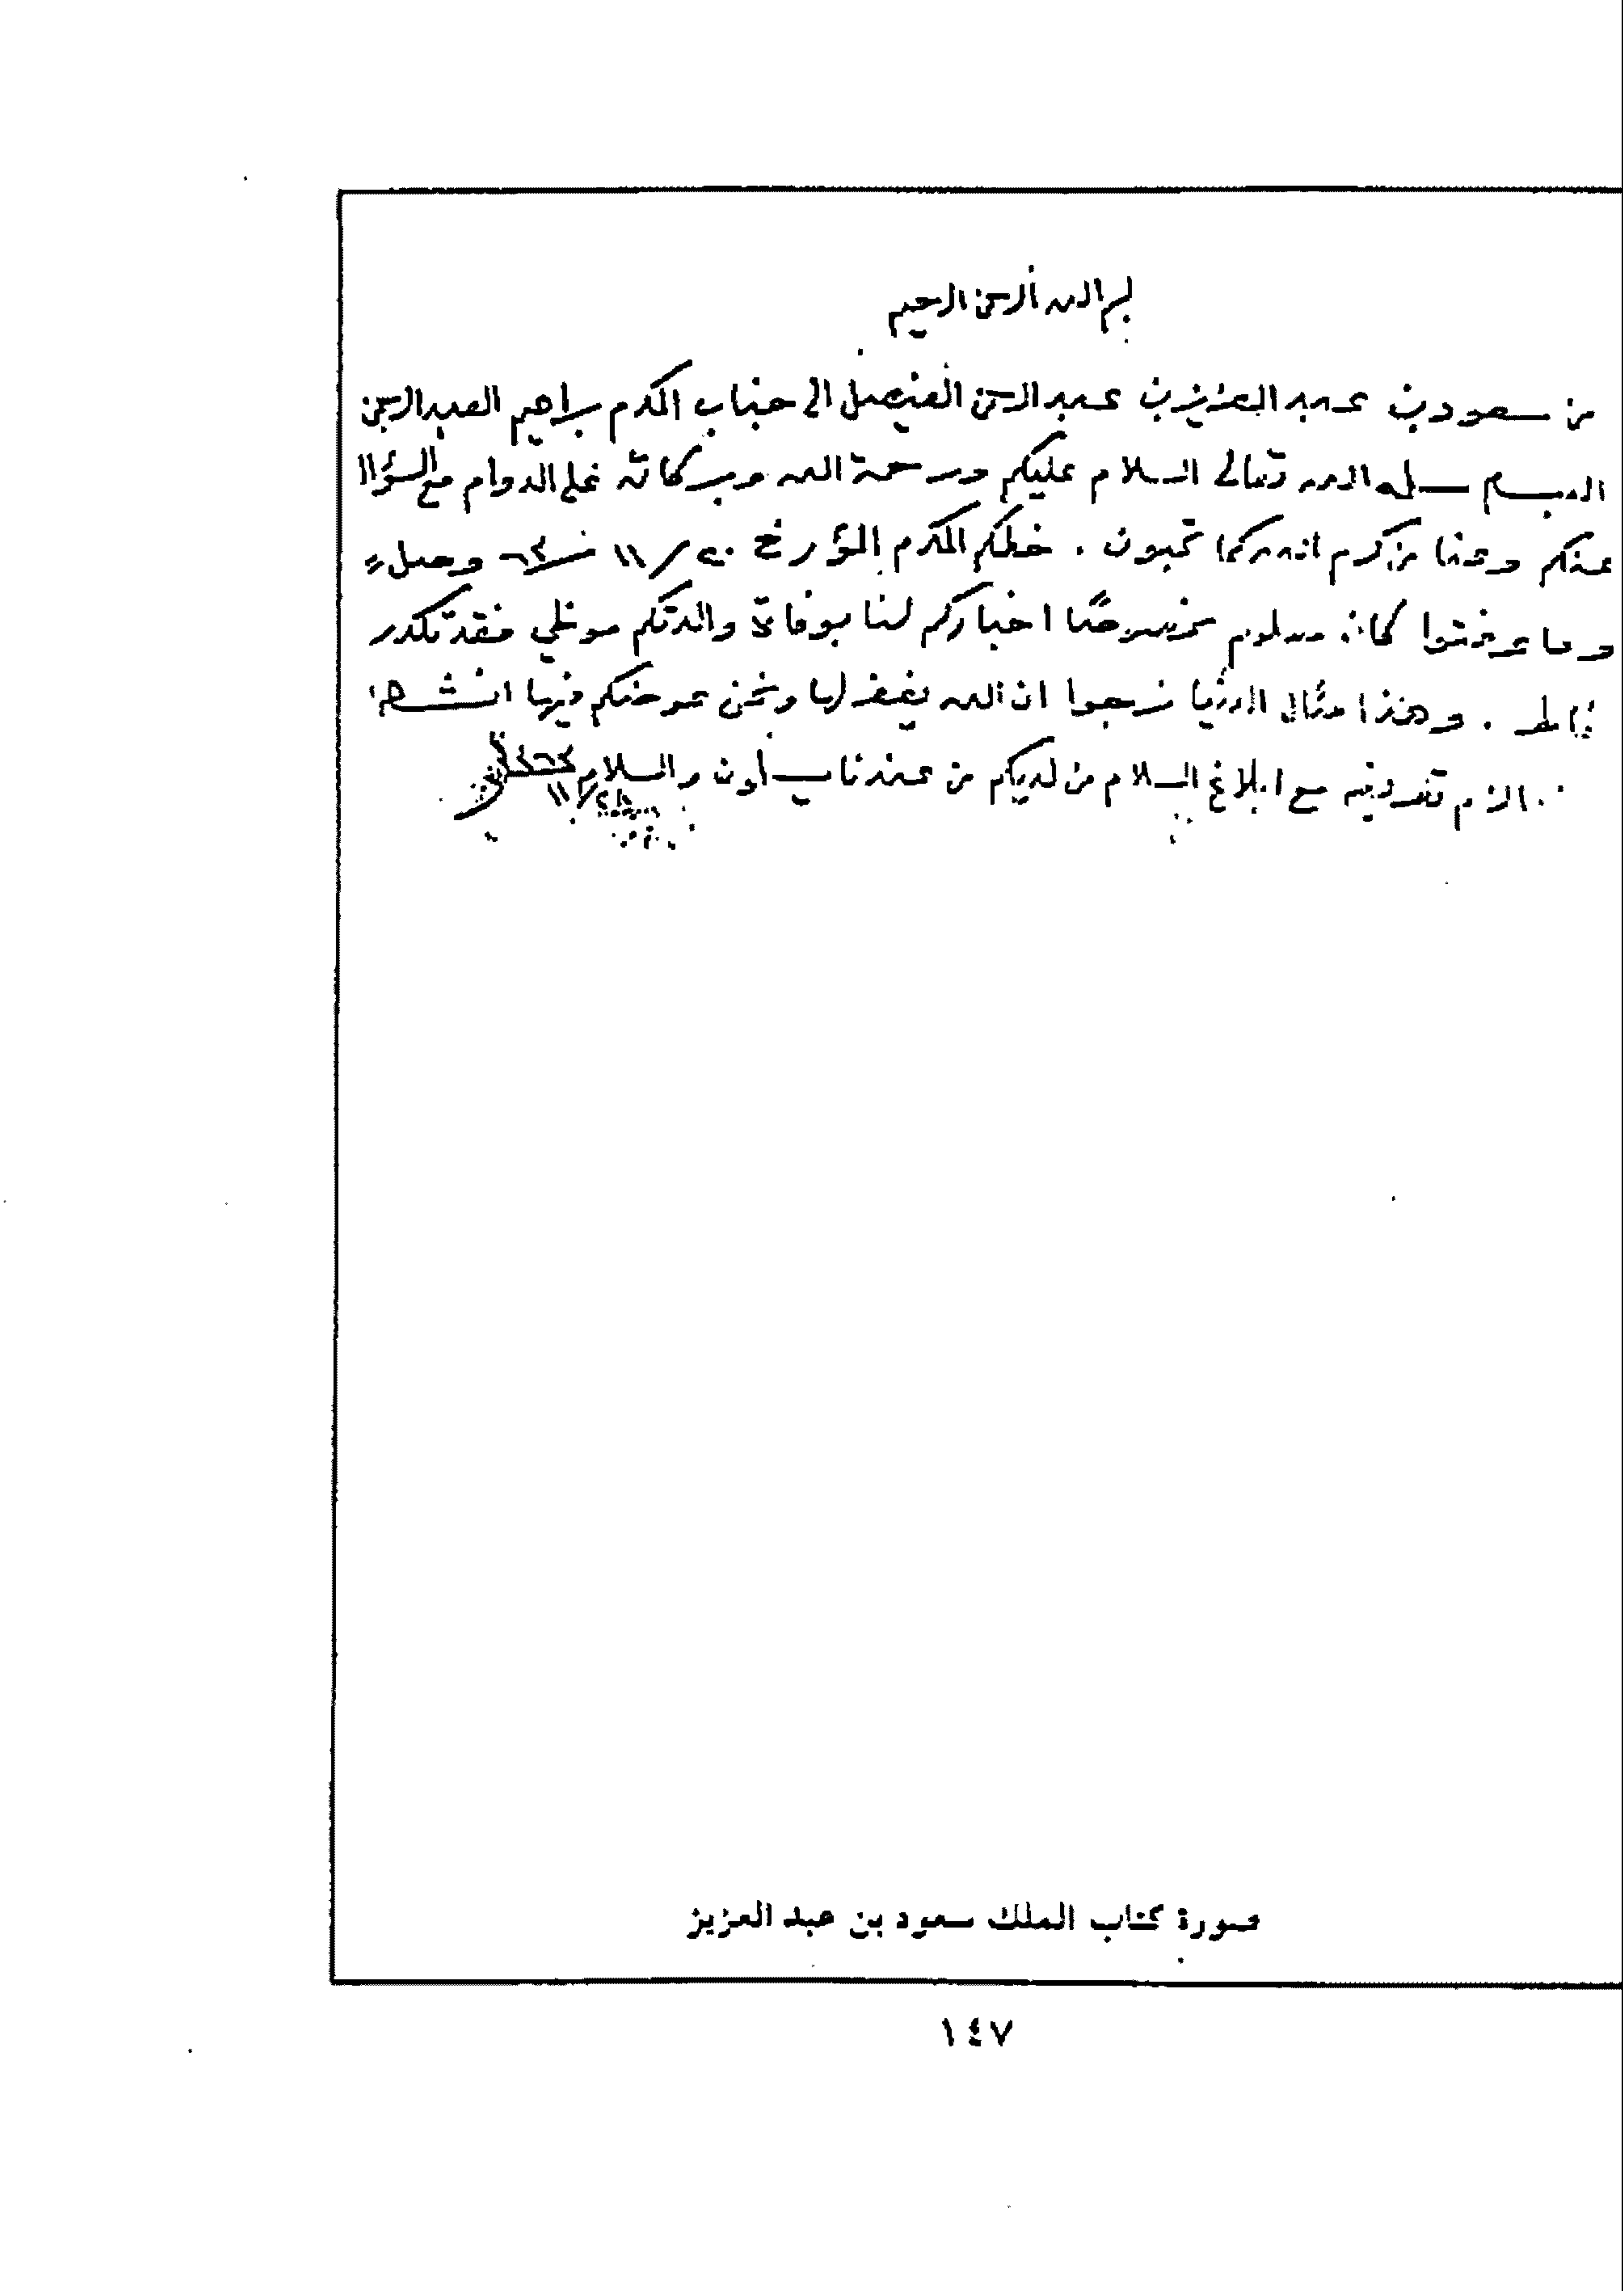 بسم الله الرحمن الرحيم
من سعود بن عبد العزيز بن عبد الرحمن الفيصل الى جناب المكرم براهيم العبد الرحمن
البسام سلمه الله تعالى السلام عليكم ورحمة الله وبركاته على الدوام مع السؤال
عنكم وعنا من كرم الله كما تحبون . خطكم المكرم المؤرخ ٢٠/١١ سنة ٦٣ وصل
وما عرفتوا كان معلوم خصوصا اخباركم لنا بوفاة والدتكم فقد تكدر
خاطر . وهذا مئال الدنيا نرجوا ان الله يغفر لها ونحن عوضكم فيها انشاء
الازم تعرفونه مع ابلاغ السلام من لديكم من عندنا يسلمون والسلام
١١/٢٨
صورة كتاب الملك سعود بن عبد العزيز
١٤٧